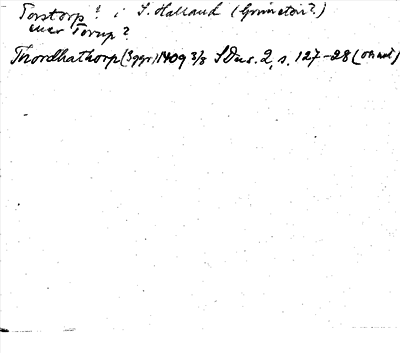 Torstorp? i S. Halland (Grimeton?)
eller Torup?
Thordhathorp (3 ggr) 1409 3/3 SDns. 2, s. 127-28 (or. avt)